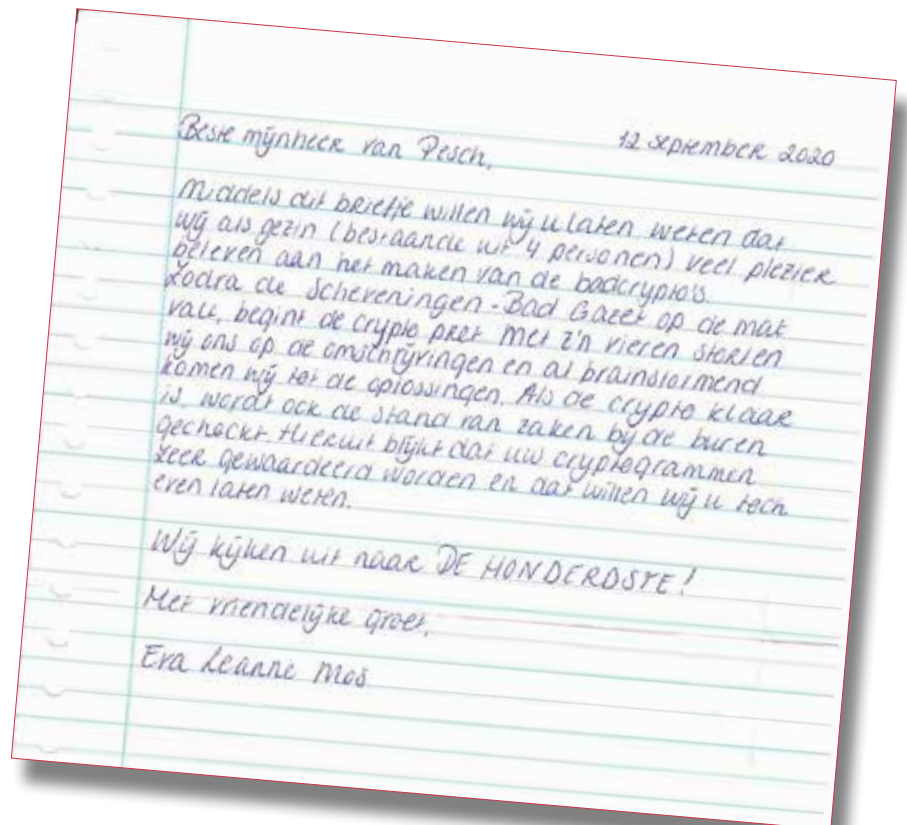 12 september 2020
Beste mijnheer van Pesch,
Middels dit briefje willen wij u laten weten dat
wij als gezin (bestaande uit 4 personen) veel plezier
beleven aan het maken van de badcrypto's.
Zodra de Scheveningen-Bad Gazet op de mat
valt, begint de crypto pret. Met z'n vieren storten
wij ons op de omschrijvingen en al brainstormend
komen wij tot de oplossingen. Als de crypto klaar
is, wordt ook de stand van zaken bij de buren
gecheckt. Hieruit blijkt dat uw cryptogrammen
zeer gewaardeerd worden en dat willen wij u toch
even laten weten.
Wij kijken uit naar DE HONDERDSTE!
Met vriendelijke groet,
Eva Leanne Mos